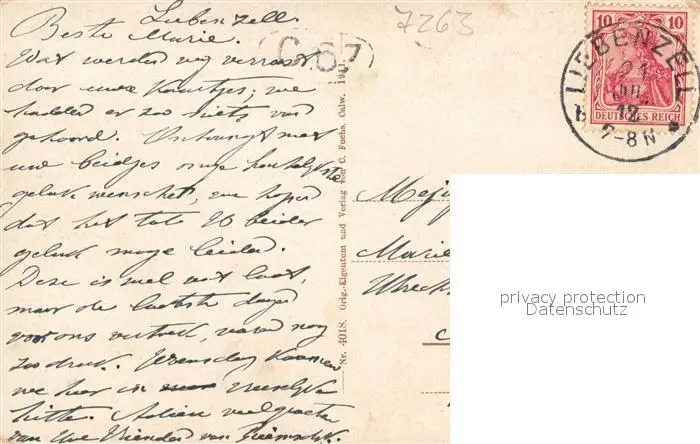 Liebenzell.
Beste Marie.
Wat werden wij verrast
door uwe kaartjes; we
hadden er zoo niets van
gehoord. Ontvangt met
uw beidjes onze hartelijkste
gelukwenschen, we hopen
dat het tot U beider
geluk moge leiden.
Deze is wel wat laat,
maar de laatste dagen
voor ons vertrek, waren nog
zoo druk. Woensdag kwamen
we hier in vreeselijke
hitte. Adieu veel groeten
van Uwe Vrienden van
7263
C.67
Nr. 4018. Orig.-Eigentum und Verlag von C. Fuchs, Calw. 1911.
10 10
DEUTSCHES REICH
LIEBENZELL
21
JUL.
12
7-8N
b
Mej
Marie
Utrech
privacy protection
Datenschutz